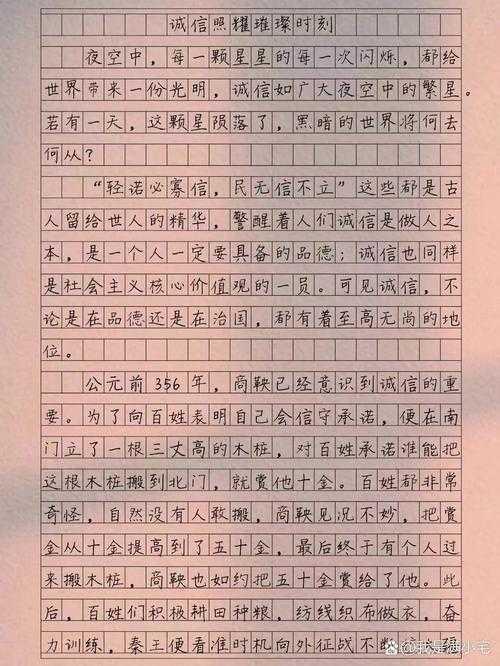 诚信照耀璀璨时刻
夜空中，每一颗星星的每一次闪烁，都给
世界带来一份光明，诚信如广大夜空中的繁星。
若有一天，这颗星陨落了，黑暗的世界将何去
何从？
“轻诺必寡信，民无信不立”这些都是古
人留给世人的精华，警醒着人们诚信是做人之
本，是一个人一定要具备的品德；诚信也同样
是社会主义核心价值观的一员。可见诚信，不
论是在品德还是在治国，都有着至高无尚的地
位。
公元前356年，商鞅已经意识到诚信的重
要。为了向百姓表明自己会信守承诺，便在南
门立了一根三丈高的木桩，对百姓承诺谁能把
这根木桩搬到北门，就赏他十金。百姓都非常
奇怪，自然没有人敢搬，商鞅见况不妙，把赏
金从十金提高到了五十金，最后终于有个人过
来搬木桩，商鞅也如约把五十金赏给了他。此
后，百姓们积极耕田种粮，纺线织布做衣，奋
力训练，秦王便看准时机向外征战不断